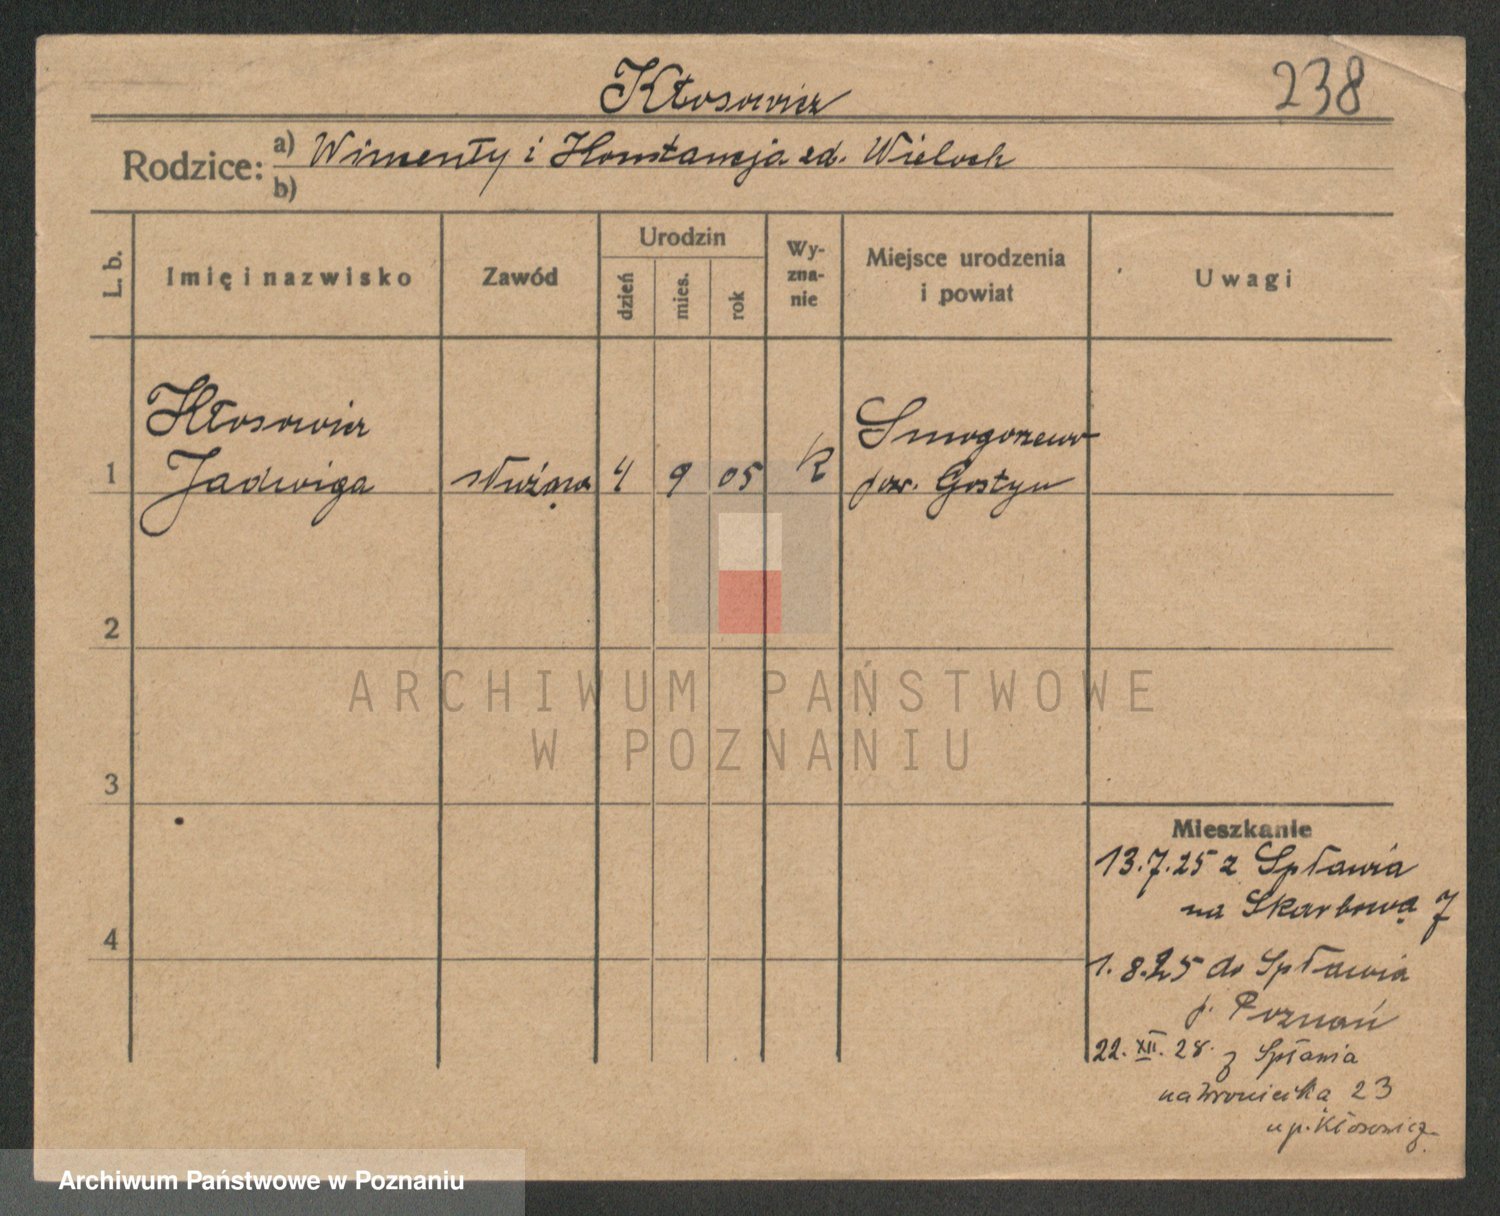 Kłosowicz
238
Rodzice: a) Wincenty i Konstancja zd. Wieloch
b)
L. b.
Imię i nazwisko
Zawód
Urodzin
dzień
mies.
rok
Wy-
zna-
nie
Miejsce urodzenia
i powiat
Uwagi
Kłosowicz
1 Jadwiga
służąca
4
9
05
k
Smogorzewo
pow. Gostyn
2
3
4
ARCHIWUM PAŃSTWOWE
W POZNANIU
Mieszkanie
13.7.25 z Spławia
na Skarbową 7
1.8.25 do Spławia
p. Poznań
22.XII.28. z Spławia
na Wroniecka 23
u p. Kłosowicz
Archiwum Państwowe w Poznaniu